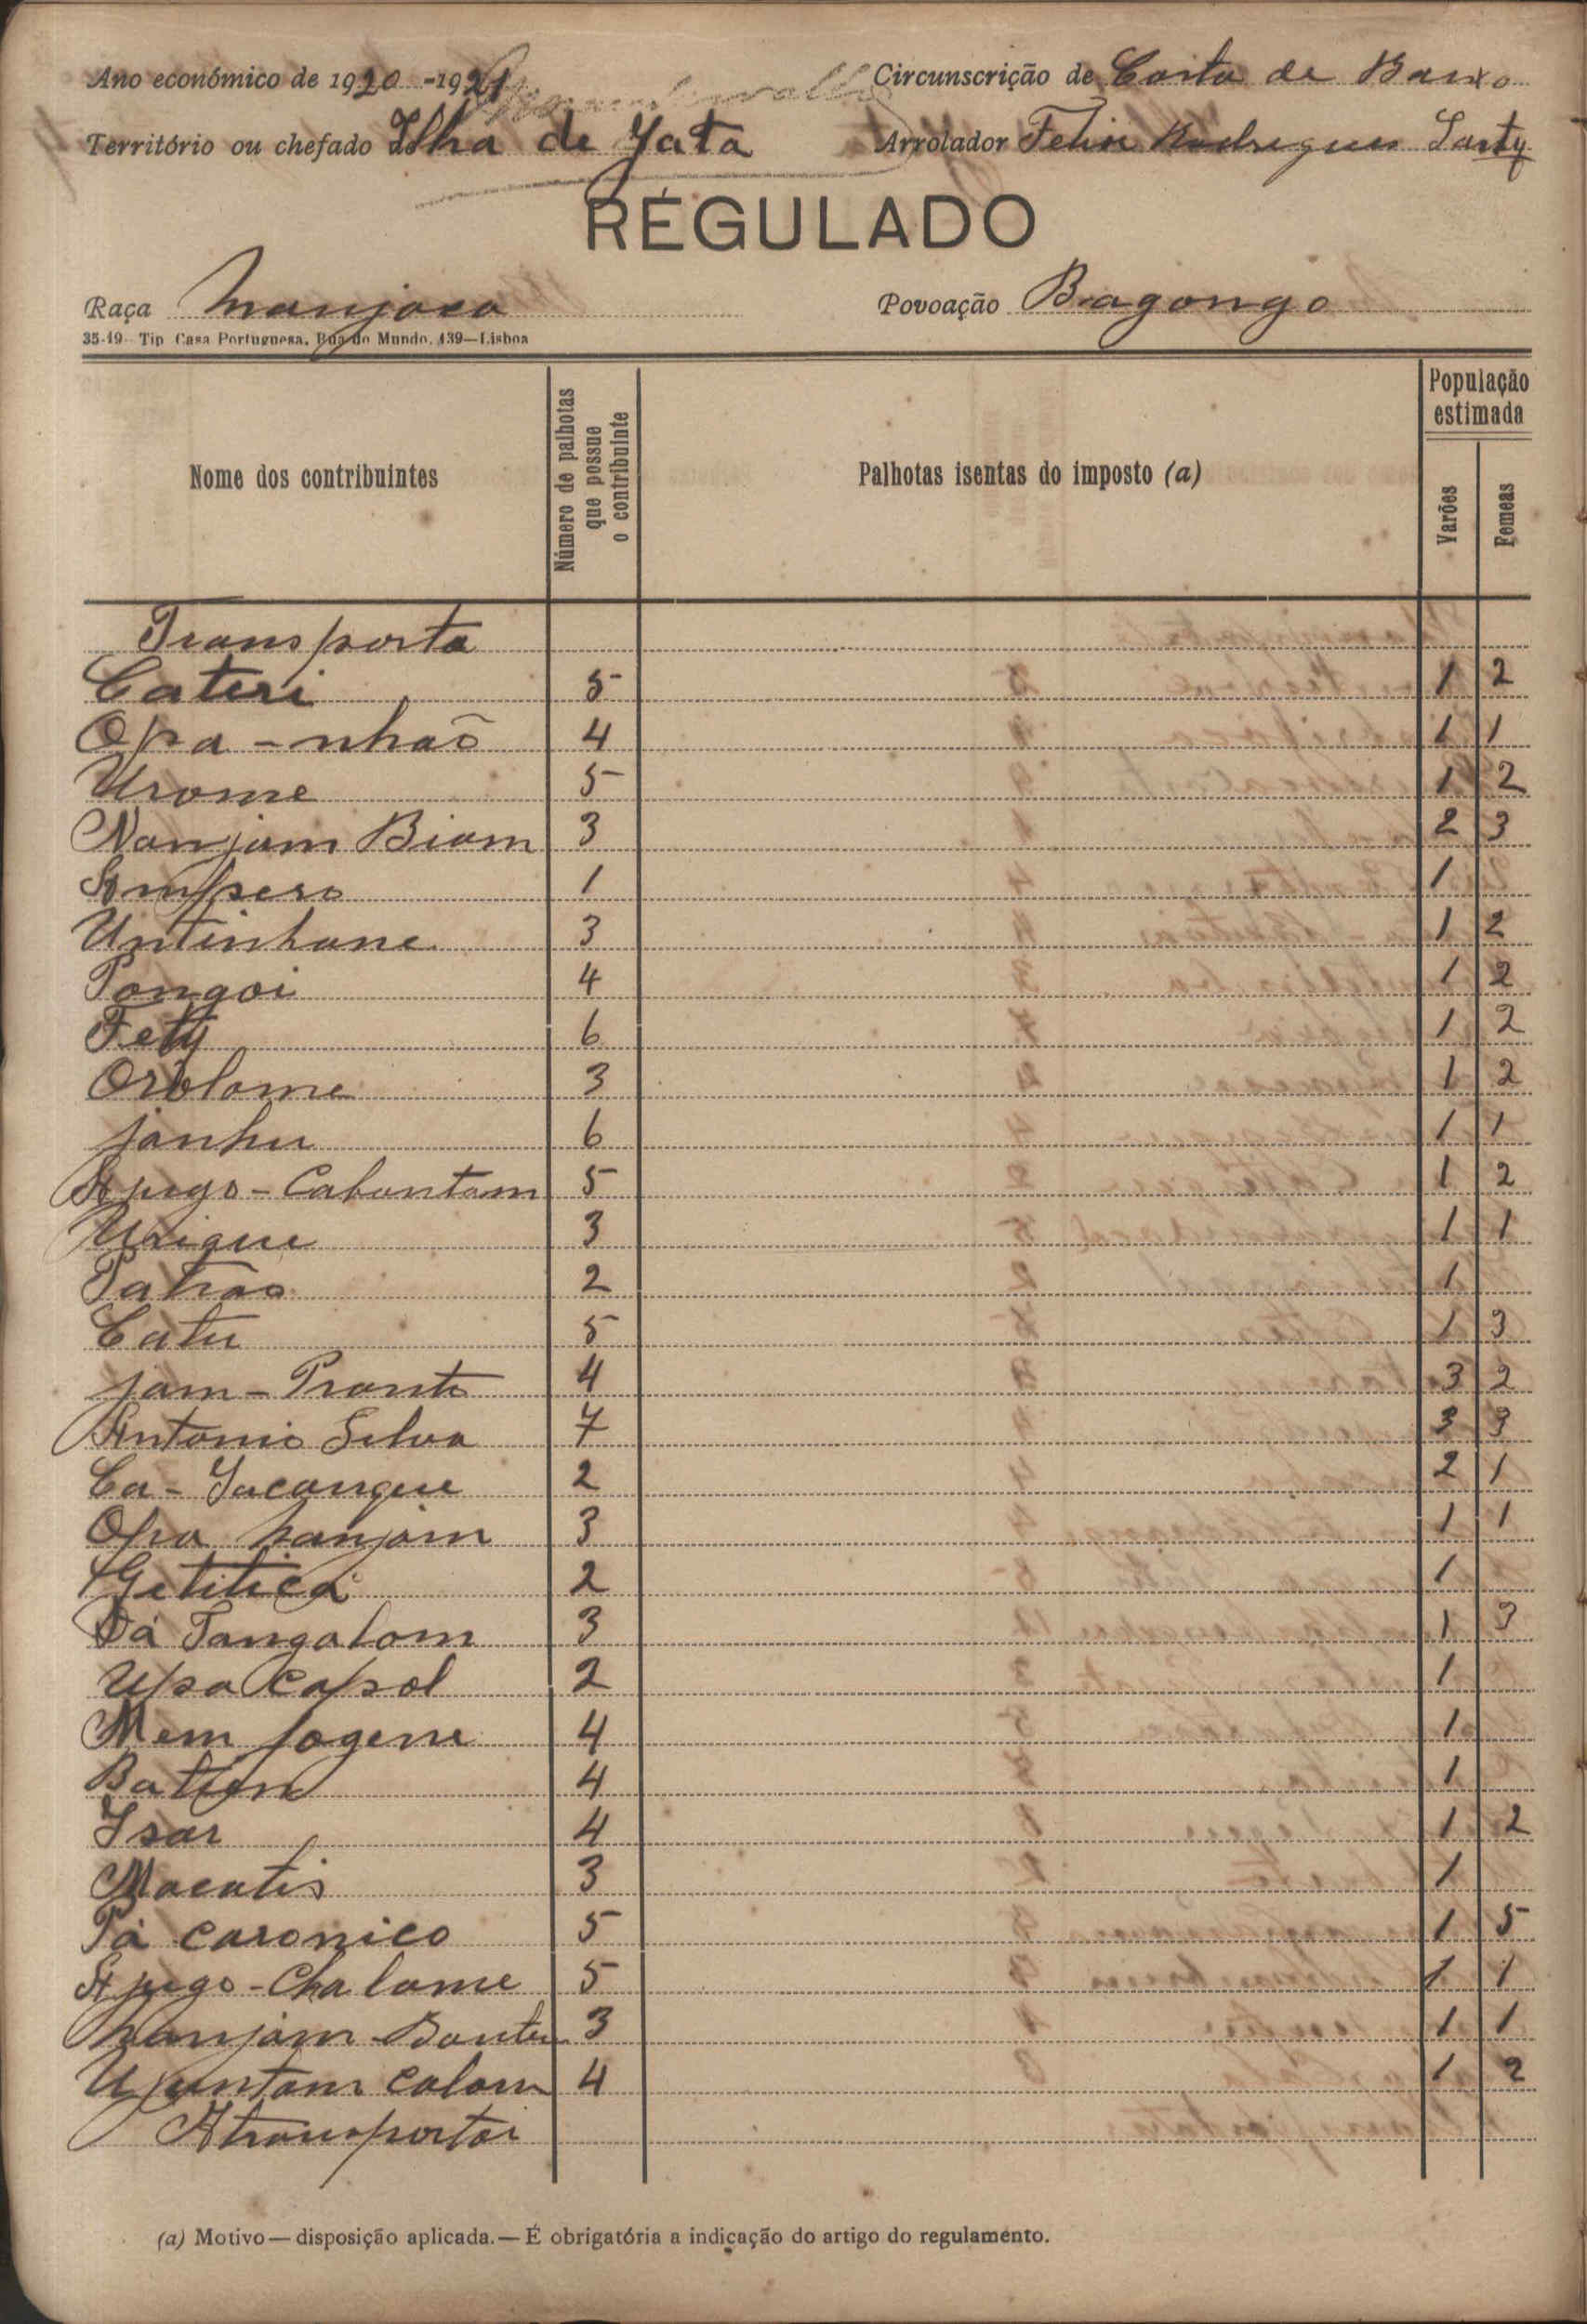 Ano económico de 1920-1921 Circunscrição de Costa de Baixo
Território ou chefado de Ilha de Jata Arrolador Felix Rodrigues
REGULADO
Raça Manjaca Povoação Bagongo
35-19- Tip Casa Portuguesa, Rua do Mundo, 139—Lisboa
Nome dos contribuintes Número de palhotas que possue o contribuinte Palhotas isentas do imposto (a) População estimada Varões Femeas
Transporta
Cateri 5 1 2
Opa - nhaõ 4 1 1
Urome 5 1 2
Nanjam Biam 3 2 3
Ampero 1 1
Untinhane 3 1 2
Pongoi 4 1 2
Fety 6 1 2
Orolome 3 1 2
Janhu 6 1 1
Apugo - Cabontam 5 1 2
Urique 3 1 1
Patrao 2 1
Catu 5 1 3
Jam - Pronto 4 3 2
Antonio Silva 7 3 3
Ca - Jacanque 2 2 1
Opa nanjam 3 1 1
Getitica 2 1
Pá Tangalom 3 1 3
Upa Capol 2 1
Mem Jogene 4 1
Batien 4 1
Isar 4 1 2
Macatis 3 1
Pá caronico 5 1 5
Apugo - Chalame 5 1 1
nanjam Bontu 3 1 1
Upuntam calom 4 1 2
A transportar
(a) Motivo—disposição aplicada.—É obrigatória a indicação do artigo do regulamento.